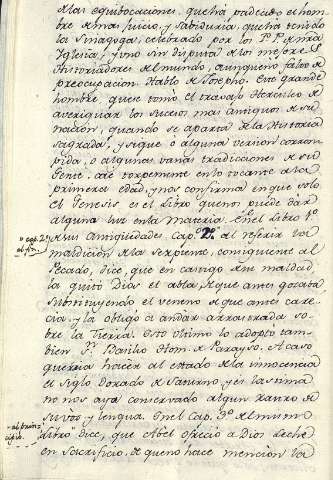 de las equibocaciones. que ha padecido el hom-
bre de mas juicio, y sabiduria que ha tenido
la Sinagoga, celebrado por los PP. de nra
Iglesia, y uno sin disputa de los mejores
Historiadores del mundo, aunque no falto de
preocupacion. Hablo de Josepho. Este grande
hombre, que se tomó el travajo Herculeo de
averiguar los sucesos mas antiguos de su
nacion, quando se aparta de la Historia
sagrada, y sigue o alguna version corrom-
pida, o algunas vanas tradiciones de su
Gente. cae torpemente en lo tocante a la
primera edad, y nos confirma en que solo
el Genesis es el Libro que nos puede dar
alguna luz en la materia. En el Libro 1º
de sus Antigüedades. Cap.º 2º. al referir la
maldicion de la Serpiente, consiguiente al
Pecado, dice, que en castigo de su maldad
la quitó Dios el abla de que antes gozaba
substituyendo el veneno de que antes care-
cia. y la obligó a andar arrastrada so-
bre la Tierra. Esto ultimo lo adoptó tam-
bien Sn. Basilio Hom. de Parayso. Acaso
querria hacer al estado de la innocencia
el Siglo Dorado de Saturno, y es lastima
no nos aya conservado algun razgo de
su voz y lengua. En el Cap. 3º del mismo
Libro dice, que Abel ofreció a Dios Leche
en Sacrificio, de que no hace mencion la
cap. 2º
al fin.
al prin-
cipio.